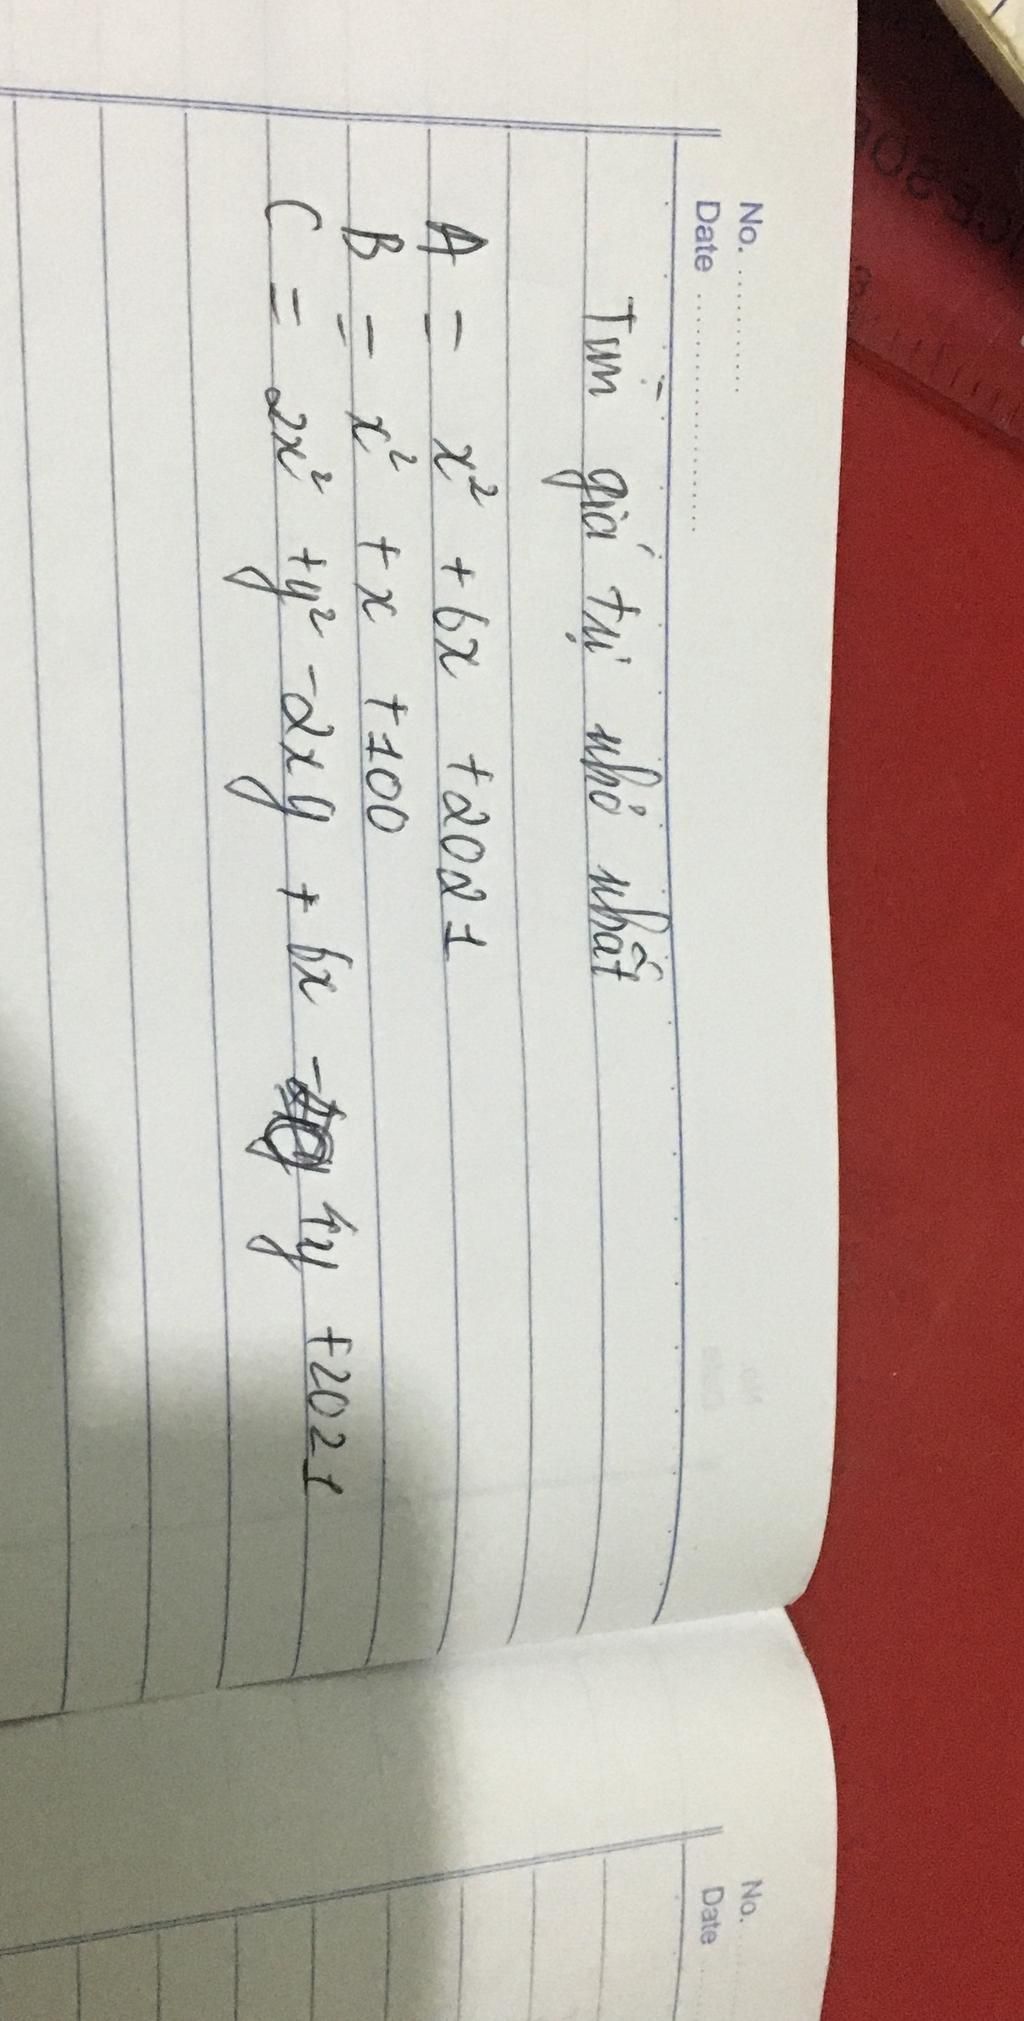 No.
Date
Tìm giá trị nhỏ nhất
A = x² + 6x + 2021
B = x² + x + 100
C = 2x² + y² - 2xy + 6x - 4y + 2021
No.
Date